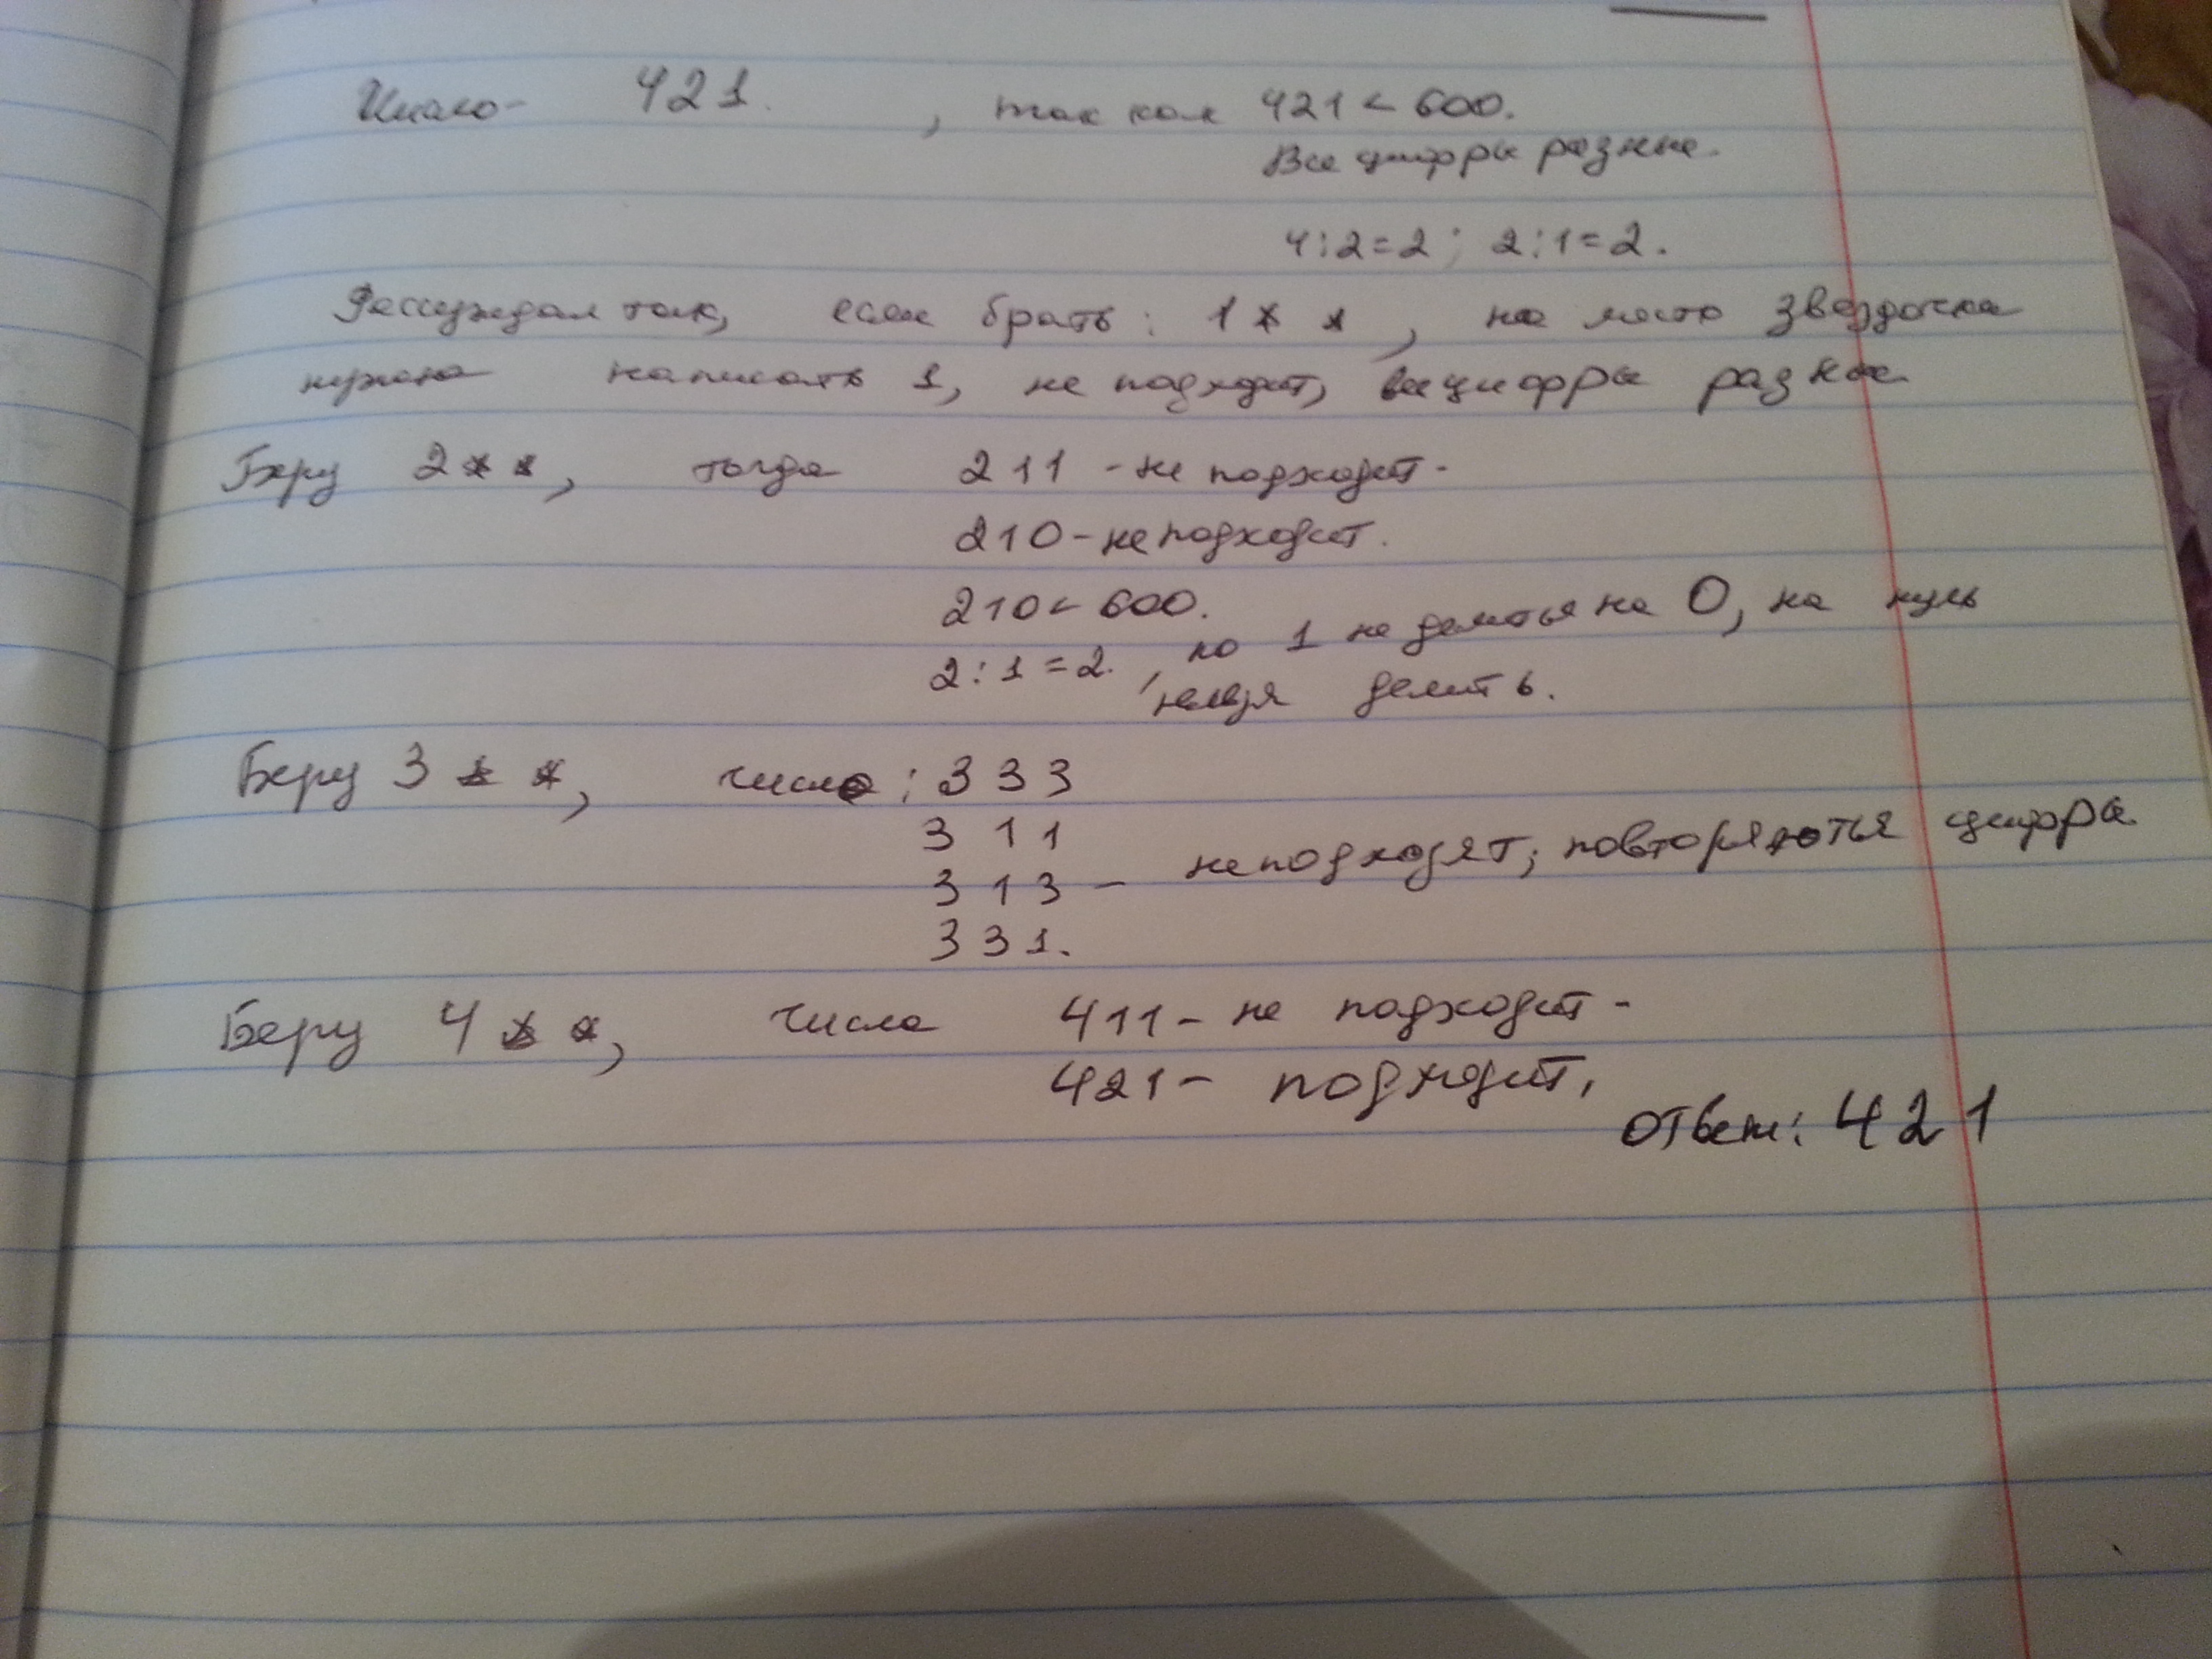 Число - 421. , так как 421 < 600.
Все цифры разные.
4:2=2; 2:1=2.
Рассуждал так, если брать: 1 * *, на место звездочки
нужно написать 1, не подходит, все цифры разные.
Беру 2 * *, тогда 211 - не подходит.
210 - не подходит.
210 < 600.
2:1=2. , но 1 не делиться на 0, на нуль
нельзя делить.
Беру 3 * *, числа: 333
311
313 - не подходят; повторяються цифры
331.
Беру 4 * *, числа 411 - не подходит.
421 - подходит.
Ответ: 421